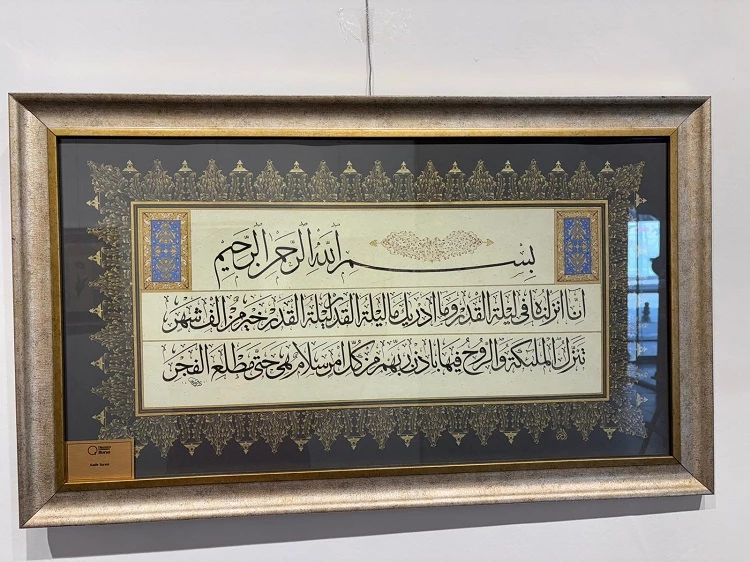 بِسْمِ اللهِ الرَّحْمٰنِ الرَّحِيمِ
اِنَّا اَنْزَلْنَاهُ فِي لَيْلَةِ الْقَدْرِ وَمَا اَدْرٰيكَ مَا لَيْلَةُ الْقَدْرِ لَيْلَةُ الْقَدْرِ خَيْرٌ مِنْ اَلْفِ شَهْرٍ
تَنَزَّلُ الْمَلٰئِكَةُ وَالرُّوحُ فِيهَا بِاِذْنِ رَبِّهِمْ مِنْ كُلِّ اَمْرٍ سَلَامٌ هِيَ حَتّٰى مَطْلَعِ الْفَجْرِ
Kadir Suresi